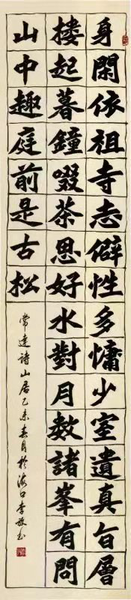 身閑依祖寺志僻性多慵少室遺真旨層
樓起暮鐘啜茶思好水對月數諸峯有問
山中趣庭前是古松
常達詩山居己未春月於海口李書